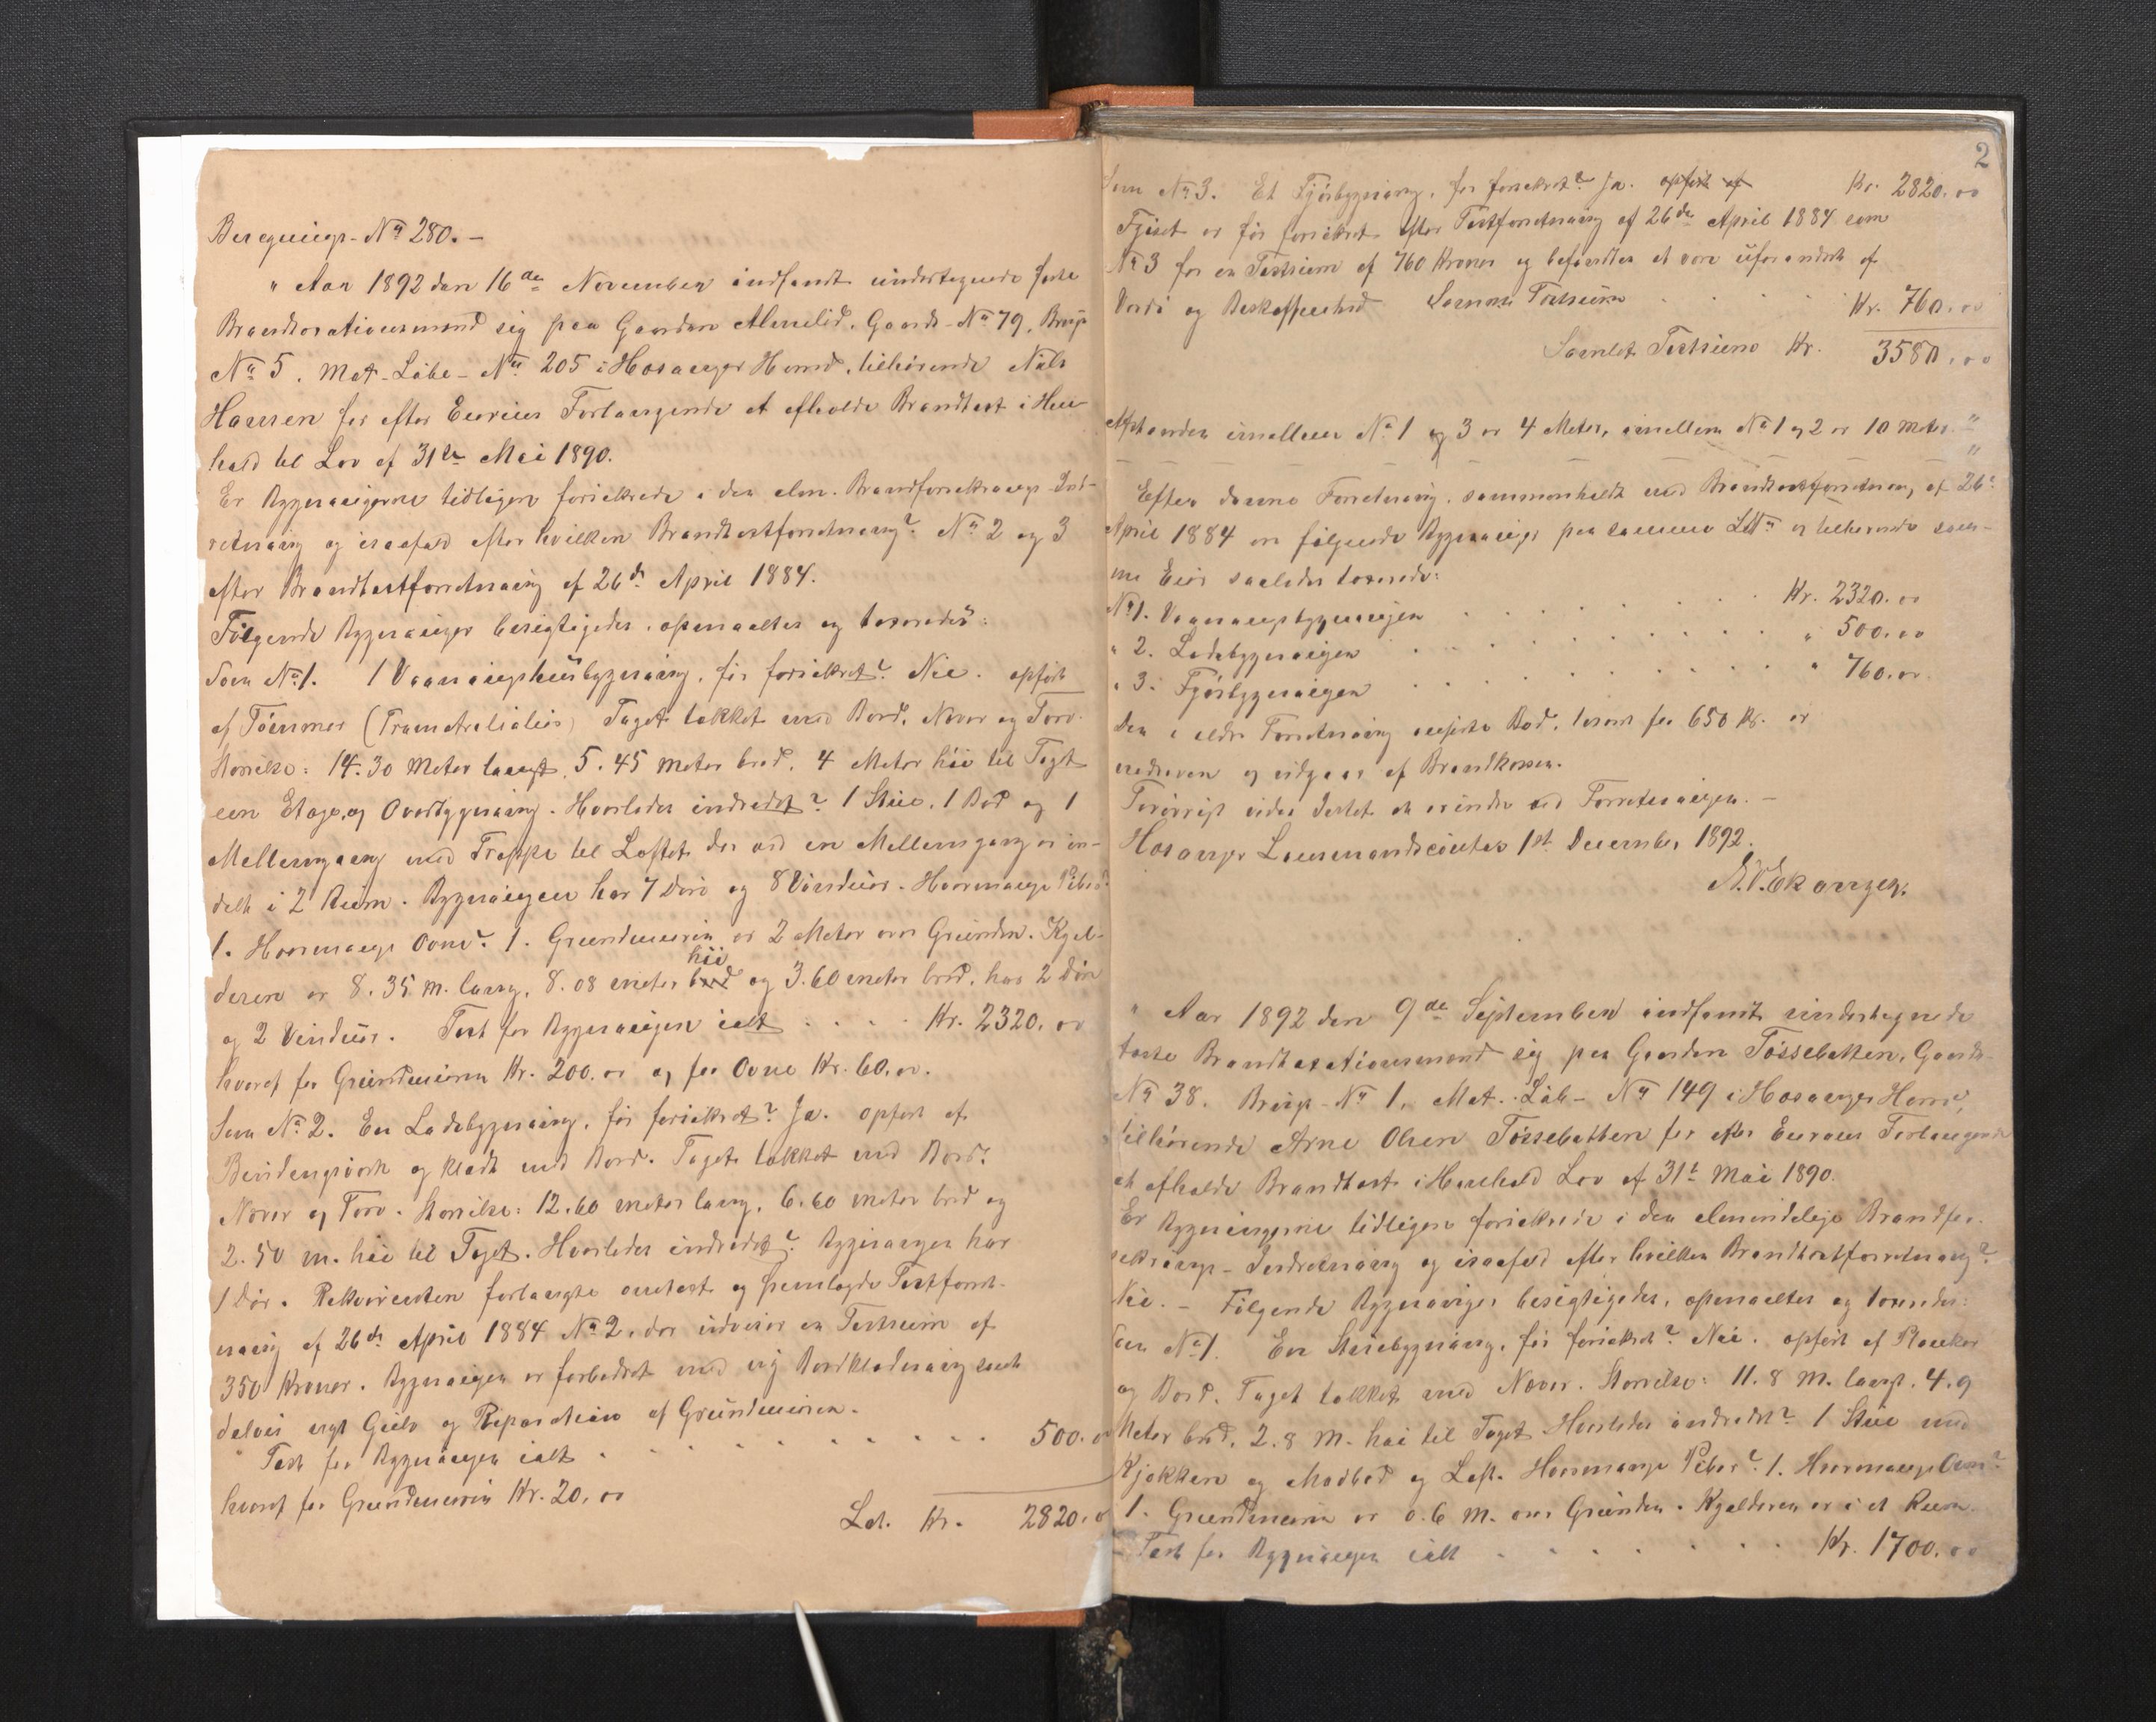 Beregnings-No 280. –
" Aar 1892 den 16de November indfandt undertegnede faste
Brandtaxationsmand sig paa Gaarden Almelid, Gaards-No 79, Brugs
No 5. Mat.-Løbe-No 205 i Hosanger Herred, tilhørende Nils
Hansen for efter Eierens Forlangende at afholde Brandtaxt i Hen-
hold til Lov af 31te Mai 1890.
Er Bygningerne tidligere forsikrede i den alm. Brandforsikrings-Ind-
retning og isaafald efter hvilken Brandtaxtforretning? No 2 og 3
efter Brandtaxtforretning af 26de April 1884.
Følgende Bygninger besigtigedes, opmaaltes og taxeredes:
Som No 1. 1 Vaaningshusbygning, før forsikret? Nei. opført
af Tømmer Taget tækket med Bord, Næver og Torv.
Størrelse: 14.30 Meter langt, 5.45 Meter bred, 4 Meter høi til Taget
een Etage og Overbygning. Hvorledes indredet? 1 Stue, 1 Bod og 1
Mellemgang med Trappe til Loftet der ved en Mellemgang er in-
delt i 2 Rum. Bygningen har 7 Døre og 8 Vinduer. Hvormange Piber?
1. Hvormange Ovne? 1. Grundmuren er 2 Meter over Grunden. Kjel-
høi
deren er 8.35 m. lang, 8.08 meter bred og 3.60 meter bred, har 2 Døre
og 2 Vinduer. Taxt for Bygningen ialt . . . . Kr. 2320.00
hvoraf for Grundmuren Kr. 200.00 og for Ovne Kr. 60.00.
Som No 2. En Ladebygning, før forsikret? Ja. opført af
Bindingsværk og klædt med Bord. Taget tækket med Bord,
Næver og Torv. Størrelse: 12.60 meter lang, 6.60 meter bred og
2.50 m. høi til Taget. Hvorledes indredet? Bygningen har
1 Dør. Rekvirenten forlangte omtaxt og fremlagde Taxtforret-
ning af 26de April 1884 No 2, der udviser en Taxtsum af
350 Kroner. Bygningen er forbedret med ny Bordklædning samt
delvis nyt Gulv og Reparation af Grundmuren.
Taxt for Bygningen ialt . . . . . . . . . 500.00
hvoraf for Grundmuren Kr. 20.00
Lat. Kr. 2820.00
2
Som No 3. Et Fjøsbygning, før forsikret? Ja. opført af Kr. 2820.00
Fjøset er før forsikret efter Taxtforretning af 26de April 1884 som
No 3 for en Taxtsum af 760 Kroner og befandtes at være uforandret af
Værdi og Beskaffenhed Samme Taxtsum . . . . Kr. 760.00
Samlet Taxtsum Kr. 3580.00
Afstanden imellem No 1 og 3 er 4 Meter, imellem No 1 og 2 er 10 Meter. "
"
Efter denne Forretning, sammenholdt med Brandtaxtforretning af 26de
April 1884 er følgende Bygninger paa samme Lbn og tilhørende sam-
me Eier saaledes taxerede:
No 1. Vaaningsbygningen . . . . . . Kr. 2320.00
" 2. Ladebygningen . . . . . . " 500.00
" 3. Fjøsbygningen . . . . . . " 760.00
Den i ældre Forretning anførte Bod, taxeret for 650 Kr. er
nedreven og udgaar af Brandkassen.
Forøvrigt vides Intet at erindre ved Forretningen. –
Hosanger Lensmandscontor 1ste December 1892.
Ekanger.
" Aar 1892 den 9de September indfandt undertegnede
faste Brandtaxationsmand sig paa Gaarden Tøssebakken, Gaards-
No 38. Brugs-No 1, Mat.-Løb-No 149 i Hosanger Herred,
tilhørende Arne Olsen Tøssebakken for efter Eierens Forlangende
at afholde Brandtaxt i Henhold Lov af 31te Mai 1890.
Er Bygningerne tidligere forsikrede i den almindelige Brandfor-
sikrings-Indretning og isaafald efter hvilken Brandtaxtforretning?
Nei. – Følgende Bygninger besigtigedes, opmaaltes og taxeredes:
Som No 1. En Stuebygning, før forsikret? Nei. opført af Planker
og Bord. Taget tækket med Næver. Størrelse: 11.8 M. langt, 4.9
Meter bred, 2.8 M. høi til Taget. Hvorledes indredet? 1 Stue med
Kjøkken og Madbod og Loft. Hvormange Piber? 1. Hvormange Ovne?
1. Grundmuren er 0.6 M. over Grunden. Kjelderen er i et Rum.
– Taxt for Bygningen ialt . . . . . . . Kr. 1700.00